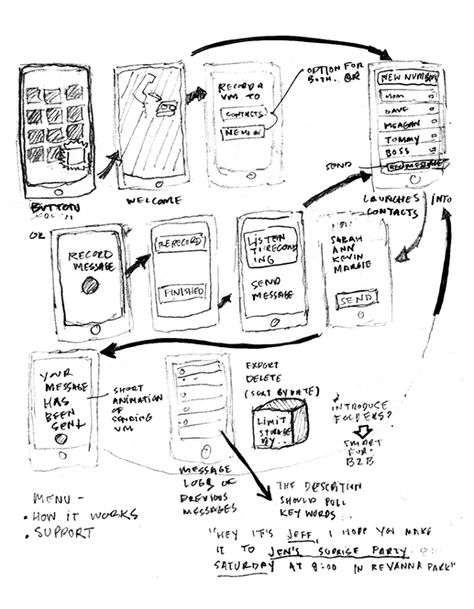 RECORD A
VM TO
CONTACTS
OPTION FOR
BOTH.. OR
NEW NUMBER
MOM
DAVE
MEAGAN
TOMMY
BOSS
SEND
BUTTON
WELCOME
LAUNCHES INTO
CONTACTS
OR
RECORD
MESSAGE
RERECORD
FINISHED
LISTEN
TO RECORD
ING
SEND
MESSAGE
SARAH
ANN
KEVIN
MARGIE
SEND
YOUR
MESSAGE
HAS
BEEN
SENT
SHORT
ANIMATION
OF
SENDING
VM
EXPORT
DELETE
(SORT BY DATE)
LIMIT
STORAGE
BY..
INTRODUCE
FOLDERS?
SMART
FOR
B2B
MESSAGE
LOGS OF
PREVIOUS
MESSAGES
THE DESCRIPTION
SHOULD PULL
KEY WORDS..
MENU -
• HOW IT WORKS
• SUPPORT
"HEY IT'S JEFF, I HOPE YOU MAKE
IT TO JEN'S SUPRISE PARTY
SATURDAY AT 8:00 IN REVANNA PARK"